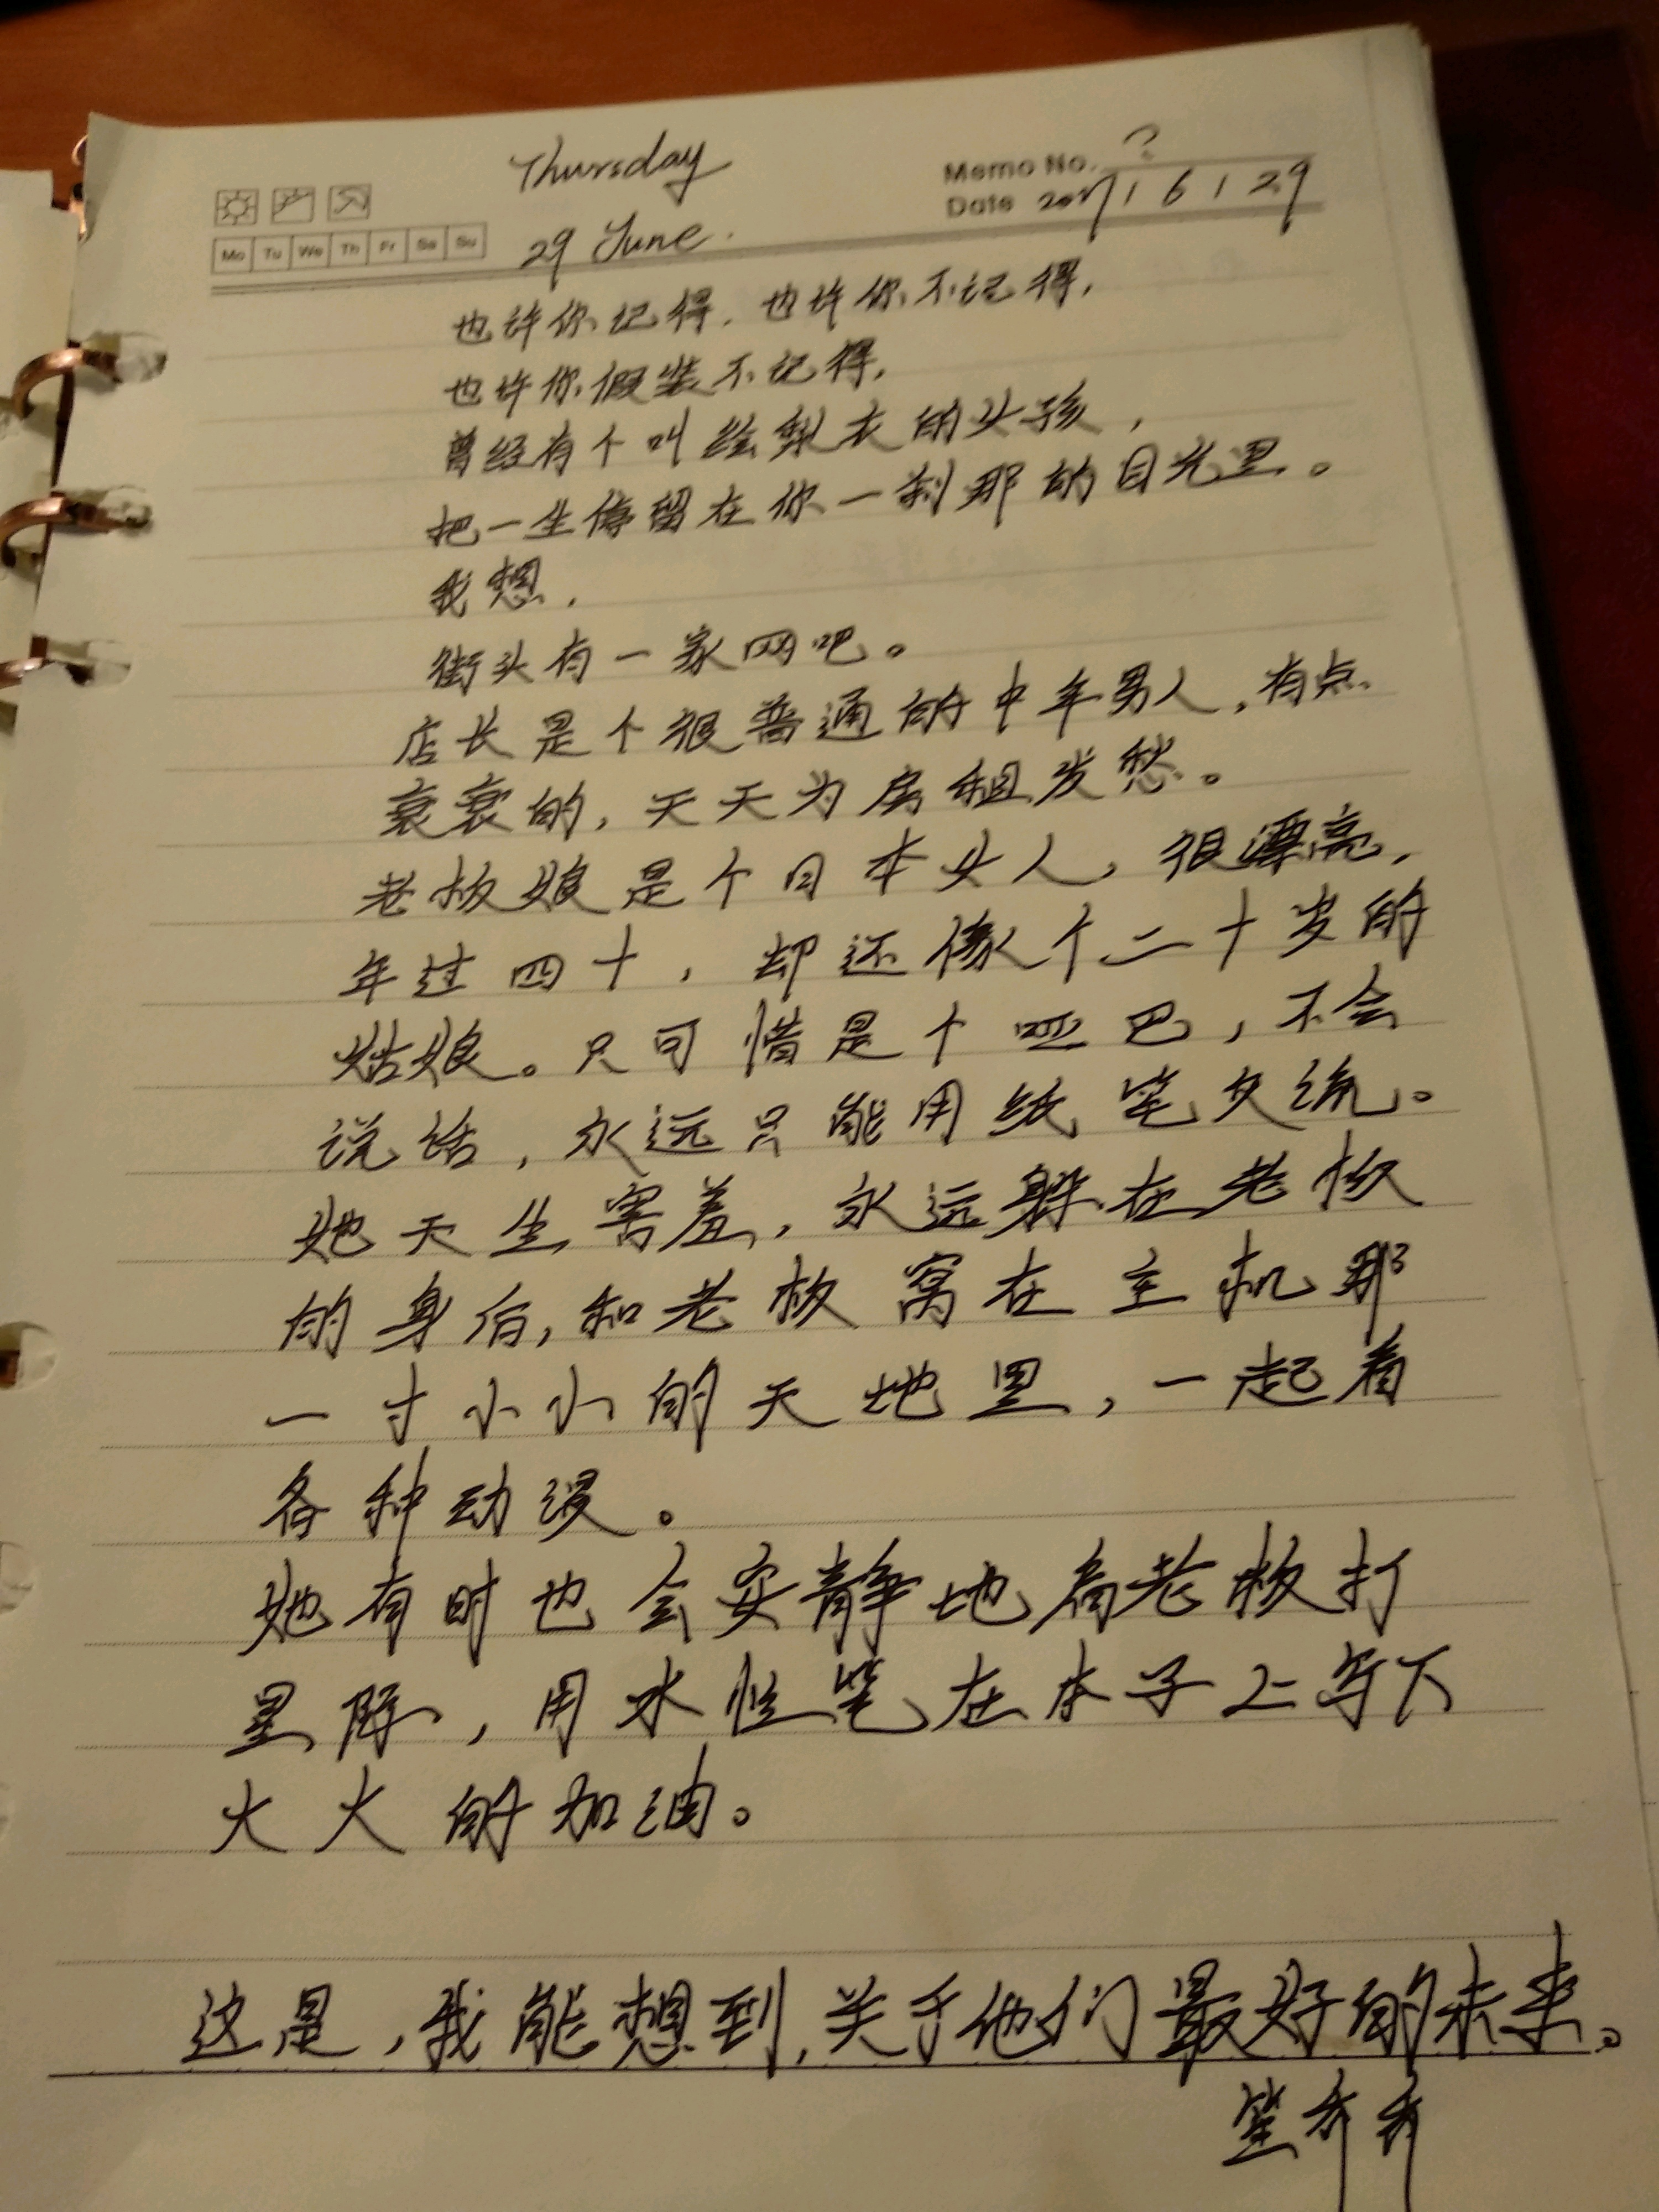 Thursday
Memo No. ?
Date 2017 / 6 / 29
Mo Tu We Th Fr Sa Su
29 June.
也许你记得,也许你不记得,
也许你假装不记得,
曾经有个叫绘梨衣的女孩,
把一生停留在你一刹那的目光里。
我想,
街头有一家网吧。
店长是个很普通的中年男人,有点
衰衰的,天天为房租发愁。
老板娘是个日本女人,很漂亮,
年过四十,却还像个二十岁的
姑娘。只可惜是个哑巴,不会
说话,永远只能用纸笔交流。
她天生害羞,永远躲在老板
的身后,和老板窝在主机那
一寸小小的天地里,一起看
各种动漫。
她有时也会安静地看老板打
星际,用水性笔在本子上写下
大大的加油。
这是,我能想到,关于他们最好的未来。